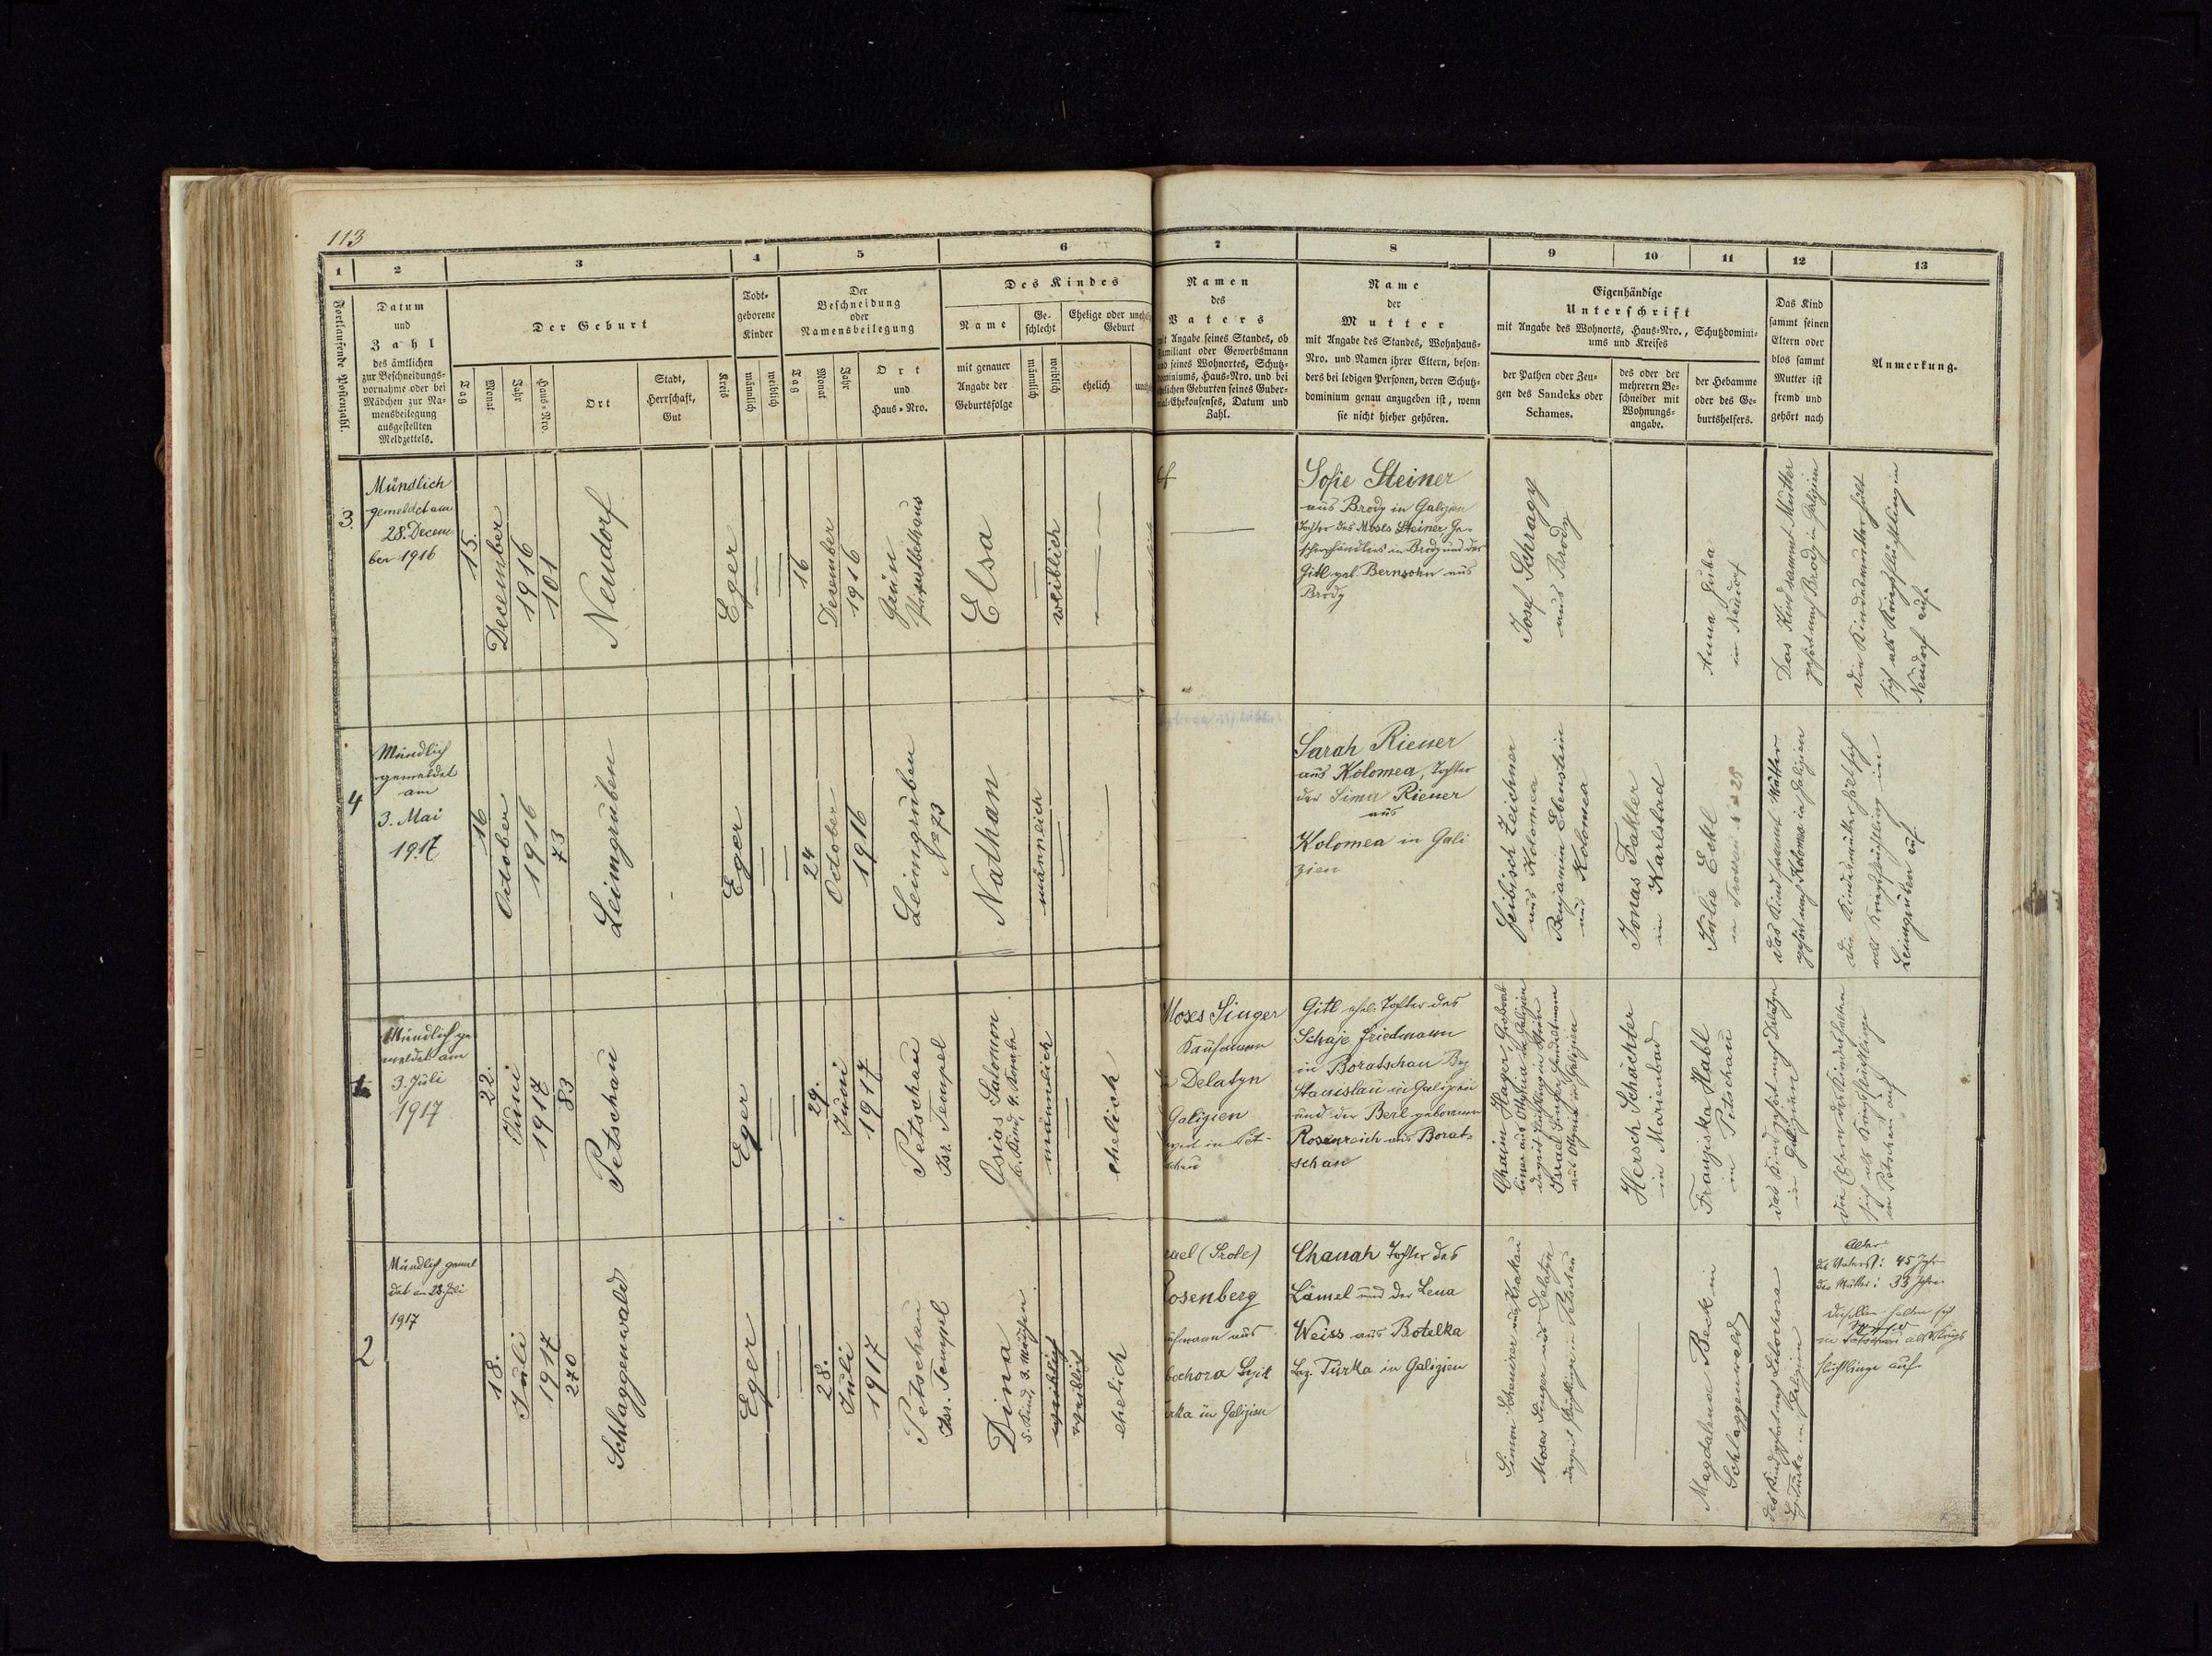 113
1
2
3
4
5
6
7
8
9
10
11
12
13
Fortlaufende Postenzahl.
Datum
und
Zahl
des ämtlichen
zur Beschneidungs-
vornahme oder bei
Mädchen zur Na-
mensbeilegung
ausgestellten
Meldzettels.
Der Geburt
Tag
Monat
Jahr
Haus-Nro.
Ort
Stadt,
Herrschaft,
Gut
Kreis
Todt-
geborene
Kinder
männlich
weiblich
Der
Beschneidung
oder
Namensbeilegung
Tag
Monat
Jahr
Ort
und
Haus-Nro.
Des Kindes
Name
mit genauer
Angabe der
Geburtsfolge
Ge-
schlecht
männlich
weiblich
Ehelige oder
Geburt
ehelich
Namen
des
Vaters
mit Angabe seines Standes, ob
Familiant oder Gewerbsmann
und seines Wohnortes, Schutz-
dominiums, Haus-Nro. und bei
ehelichen Geburten seines Guber-
nial-Ehekonsenses, Datum und
Zahl.
Name
der
Mutter
mit Angabe des Standes, Wohnhaus-
Nro. und Namen ihrer Eltern, beson-
ders bei ledigen Personen, deren Schutz-
dominium genau anzugeben ist, wenn
sie nicht hieher gehören.
Eigenhändige
Unterschrift
mit Angabe des Wohnorts, Haus-Nro., Schutzdomini-
ums und Kreises
der Pathen oder Zeu-
gen des Sandeks oder
Schames.
des oder der
mehreren Be-
schneider mit
Wohnungs-
angabe.
der Hebamme
oder des Ge-
burtshelfers.
Das Kind
sammt seinen
Eltern oder
blos sammt
Mutter ist
fremd und
gehört nach
Anmerkung.
3
Mündlich
gemeldet am
28. Decem
ber 1916
15.
December
1916
101
Neudorf
Eger
16
Dezember
1916
Grün
Elsa
weiblich
Sofie Steiner
aus Brody in Galizien
Tochter des Moses Steiner Ge-
schirrhändlers in Brody und der
Gitl geb. Bernsohn aus
Brody
Josef Schragy
aus Brody
Anna Huba
in Neudorf
Das Kind sammt Mutter
gehört nach Brody in Galizien
Die Kindesmutter hält
sich als Kriegsflüchtling in
Neudorf auf.
4
Mündlich
gemeldet
am
3. Mai
1917
16
October
1916
73
Leimgruben
Eger
24
October
1916
Leimgruben
No 73
Nathan
männlich
Sarah Riener
aus Kolomea, Tochter
der Sima Riener
aus
Kolomea in Gali
zien
Leibisch Zeichner
aus Kolomea
Benjamin Ebenstein
aus Kolomea
Jonas Fakler
in Karlsbad
Julie Eckl
in
Das Kind sammt Mutter
gehört nach Kolomea in Galizien
Die Kindesmutter hält sich
als Kriegsflüchtling in
Leimgruben auf.
1
Mündlich ge-
meldet am
3. Juli
1917
22.
Juni
1917
83
Petschau
Eger
29.
Juni
1917
Petschau
Isr. Tempel
Osias Salomon
6. Kind, 4. Knabe
männlich
ehelich
Moses Singer
Kaufmann
Delatyn
Galizien
in Pet-
schau
Gitl ehel. Tochter des
Schaje Friedmann
in Boratschau Bez
Stanislau in Galizien
und der Berl geborenen
Rosenreich aus Borat-
schan
Chaim Hager
Israel Singer Handelsmann
Hersch Schächter
in Marienbad
Franziska Habl
in Petschau
Das Kind gehört nach Delatyn
in Galizien
Die Eltern des Kindes halten
sich als Kriegsflüchtlinge
in Petschau auf
2
Mündlich gemel
det am 28. Juli
1917
18.
Juli
1917
270
Schlaggenwald
Eger
28.
Juli
1917
Petschau
Isr. Tempel
Dina
5. Kind, 3. Mädchen
weiblich
weiblich
ehelich
(Srole)
Rosenberg
aus
in Galizien
Chanah Tochter des
Lämel und der Lena
Weiss aus Botelka
Bez. Turka in Galizien
Simon Scheuirer aus Krakau
Moses Singer aus Delatyn
derzeit Flüchtlinge in Petschau
Magdalena Beck in
Schlaggenwald
Das Kind gehört nach Libochora
Bez. Turka in Galizien
Alter
des Vaters: 45 Jahre
der Mutter: 33 Jahre
Dieselben halten sich
in
flüchtlinge auf.